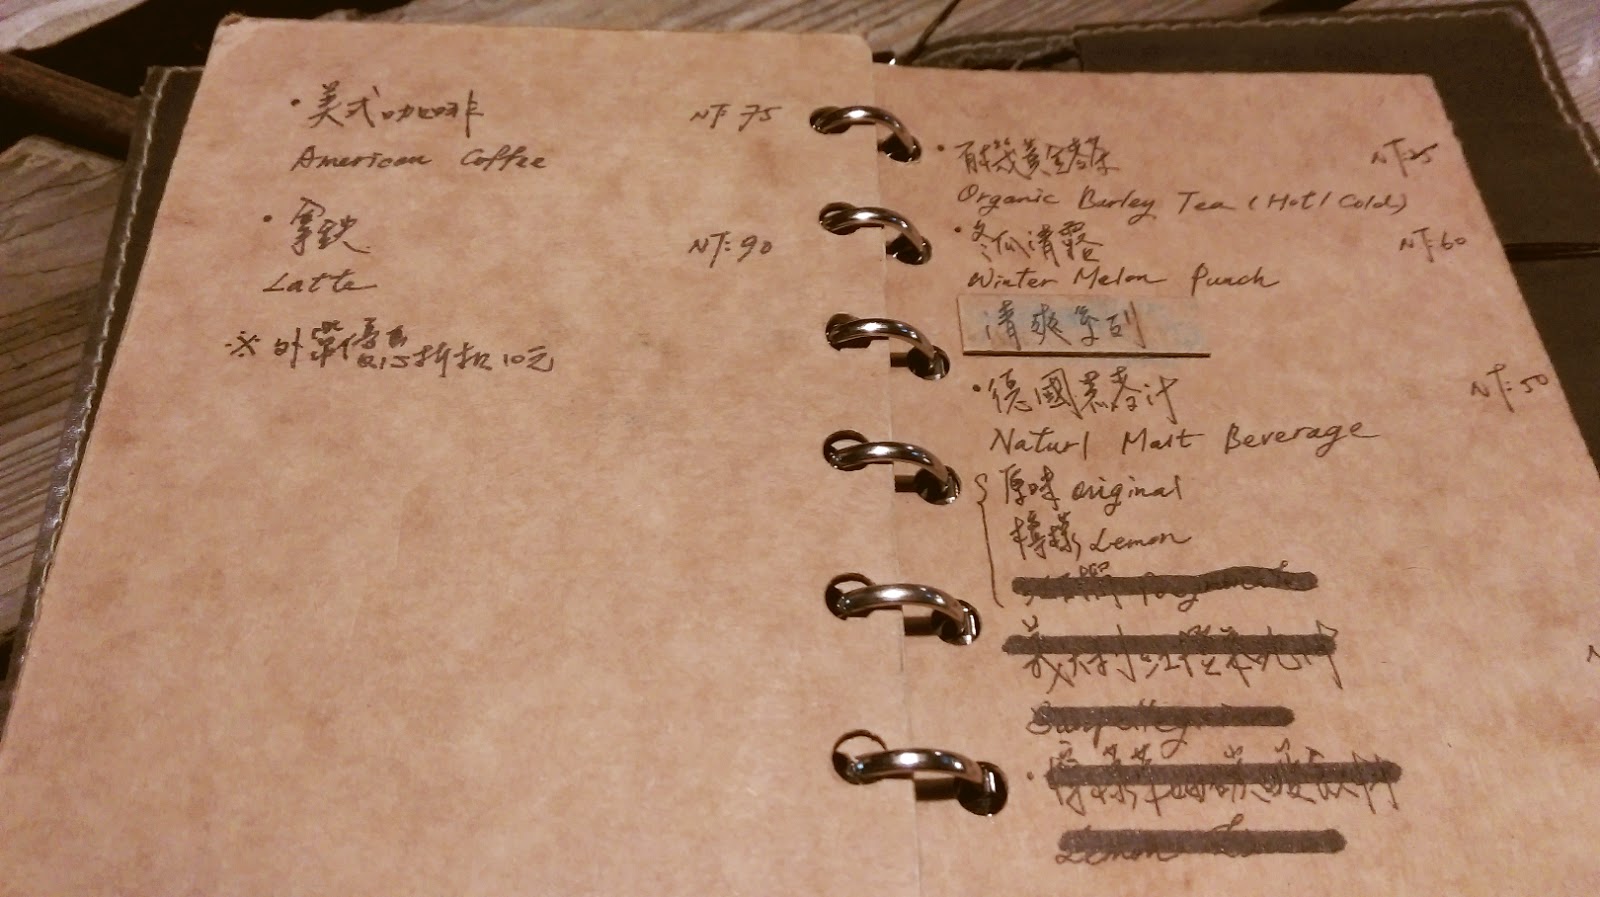 ·美式咖啡 NT: 75
American Coffee
·拿鐵 NT: 90
Latte
※外帶優惠
折扣10元
·有機黃金麥茶 NT: 25
Organic Barley Tea (Hot/Cold)
·冬瓜清露 NT: 60
Winter Melon Punch
清爽系列
·德國黑麥汁 NT: 50
Naturl Malt Beverage
原味 original
檸檬 Lemon
Lemon